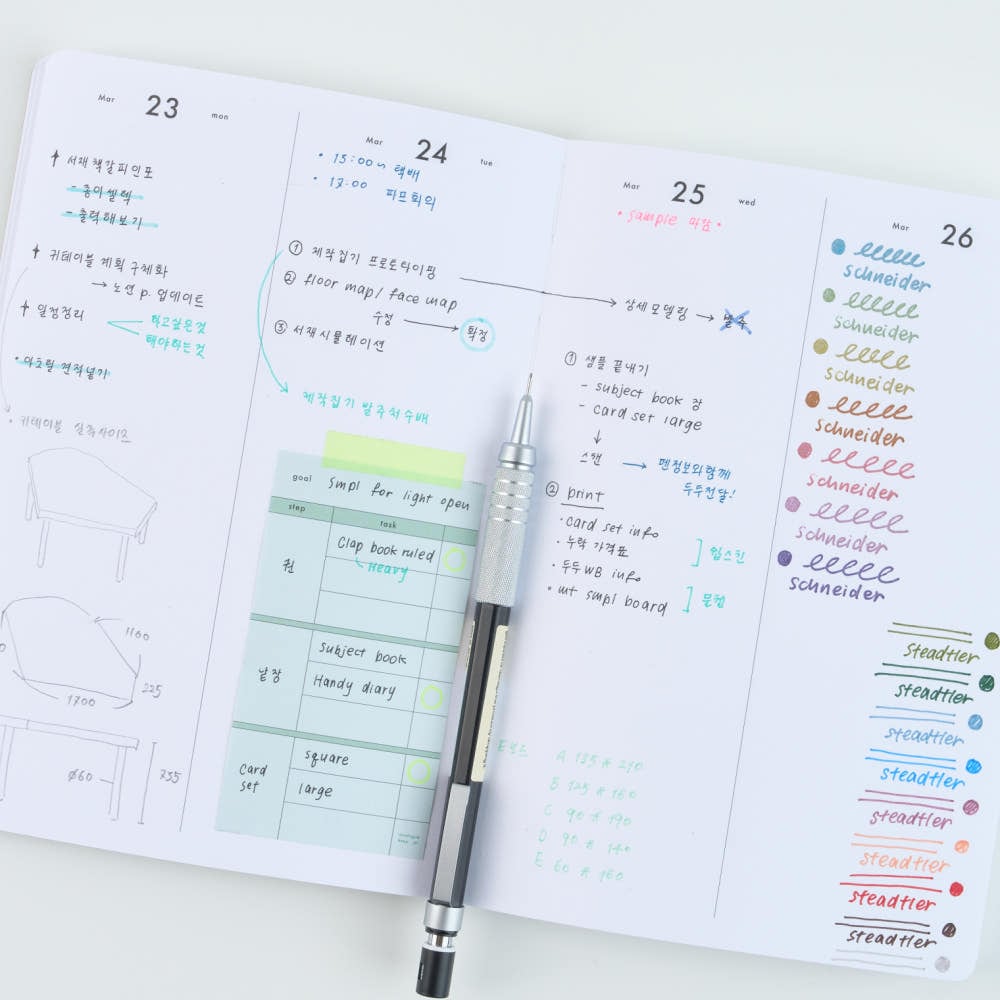 Mar 23 mon
서재 책갈피 인포
- 종이 셀렉
- 출력해보기
귀테이블 계획 구체화
→ 노션 p. 업데이트
일정정리
하고싶은것
해야하는것
귀테이블 실측사이즈
1160
225
1700
ø60
735
Mar 24 tue
• 15:00~ 택배
• 17:00
① 제작집기 프로토타입핑
② floor map/ face map
수정 → 확정
③ 서재 시뮬레이션
제작집기 발주처 수배
goal smpl for light open
step task
권
Clap book ruled
Heavy
낱장
subject book
Handy diary
Card set
square
large
Mar 25 wed
• sample 마감 •
상세모델링 → 발주
① 샘플 끝내기
- subject book 장
- card set large
↓
스캔 → 펜정보와함께
두두전달!
② print
• card set info
• 누락 가격표
• 두두 WB info
• mt smpl board
A 135 * 210
B 125 * 180
C 90 * 190
D 90 * 140
E 60 * 160
Mar 26
schneider
schneider
schneider
schneider
schneider
schneider
schneider
steadtler
steadtler
steadtler
steadtler
steadtler
steadtler
steadtler
steadtler